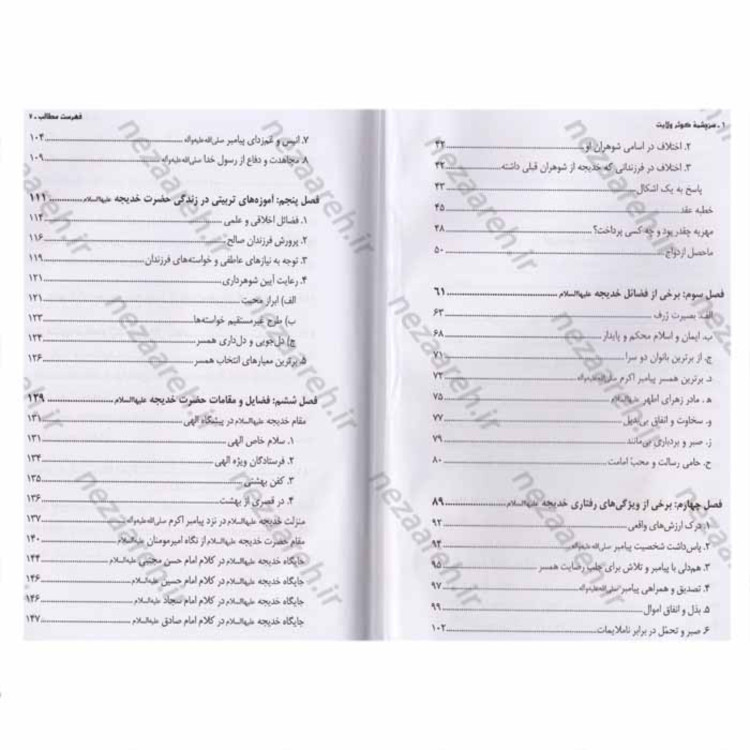 ۱۰ سرچشمهٔ کوثر ولایت
۲. اختلاف در اسامی شوهران او ۴۲
۳. اختلاف در فرزندانی که خدیجه از شوهران قبلی داشته ۴۲
پاسخ به یک اشکال ۴۳
خطبه عقد ۴۵
مهریه چقدر بود و چه کسی پرداخت؟ ۴۸
ماحصل ازدواج ۵۰
فصل سوم: برخی از فضائل خدیجه علیهاالسلام ۶۱
الف. بصیرت ژرف ۶۳
ب. ایمان و اسلام محکم و پایدار ۶۸
ج. از برترین بانوان دو سرا ۷۱
د. برترین همسر پیامبر اکرم صلی‌الله‌علیه‌وآله ۷۲
ه. مادر زهرای اطهر علیهاالسلام ۷۵
و. سخاوت و انفاق بی‌بدیل ۷۷
ز. صبر و بردباری بی‌مانند ۷۹
ح. حامی رسالت و محبّ امامت ۸۰
فصل چهارم: برخی از ویژگی‌های رفتاری خدیجه علیهاالسلام ۸۹
۱. درک ارزش‌های واقعی ۹۲
۲. پاس‌داشت شخصیت پیامبر صلی‌الله‌علیه‌وآله ۹۴
۳. هم‌دلی با پیامبر و تلاش برای جلب رضایت همسر ۹۵
۴. تصدیق و همراهی پیامبر صلی‌الله‌علیه‌وآله ۹۷
۵. بذل و انفاق اموال ۹۹
۶. صبر و تحمّل در برابر ناملایمات ۱۰۲
فهرست مطالب ۷
۷. انیس و غم‌زدای پیامبر صلی‌الله‌علیه‌وآله ۱۰۴
۸. مجاهدت و دفاع از رسول خدا صلی‌الله‌علیه‌وآله ۱۰۹
فصل پنجم: آموزه‌های تربیتی در زندگی حضرت خدیجه علیهاالسلام ۱۱۱
۱. فضائل اخلاقی و علمی ۱۱۴
۲. پرورش فرزندان صالح ۱۱۶
۳. توجه به نیازهای عاطفی و خواسته‌های فرزندان ۱۱۹
۴. رعایت آیین شوهرداری ۱۲۱
الف) ابراز محبت ۱۲۱
ب) طرح غیرمستقیم خواسته‌ها ۱۲۳
ج) دل‌جویی و دل‌داری همسر ۱۲۴
۵. برترین معیارهای انتخاب همسر ۱۲۶
فصل ششم: فضایل و مقامات حضرت خدیجه علیهاالسلام ۱۲۹
مقام خدیجه علیهاالسلام در پیشگاه الهی ۱۳۱
۱. سلام خاص الهی ۱۳۱
۲. فرستادگان ویژه الهی ۱۳۴
۳. کفن بهشتی ۱۳۵
۴. در قصری از بهشت ۱۳۶
منزلت خدیجه علیهاالسلام در نزد پیامبر اکرم صلی‌الله‌علیه‌وآله ۱۳۷
مقام حضرت خدیجه علیهاالسلام از نگاه امیرمومنان علیه‌السلام ۱۴۰
جایگاه خدیجه علیهاالسلام در کلام امام حسن مجتبی علیه‌السلام ۱۴۴
جایگاه خدیجه علیهاالسلام در کلام امام حسین علیه‌السلام ۱۴۶
جایگاه خدیجه علیهاالسلام در کلام امام سجاد علیه‌السلام ۱۴۶
جایگاه خدیجه علیهاالسلام در کلام امام صادق علیه‌السلام ۱۴۷
nezaareh.ir